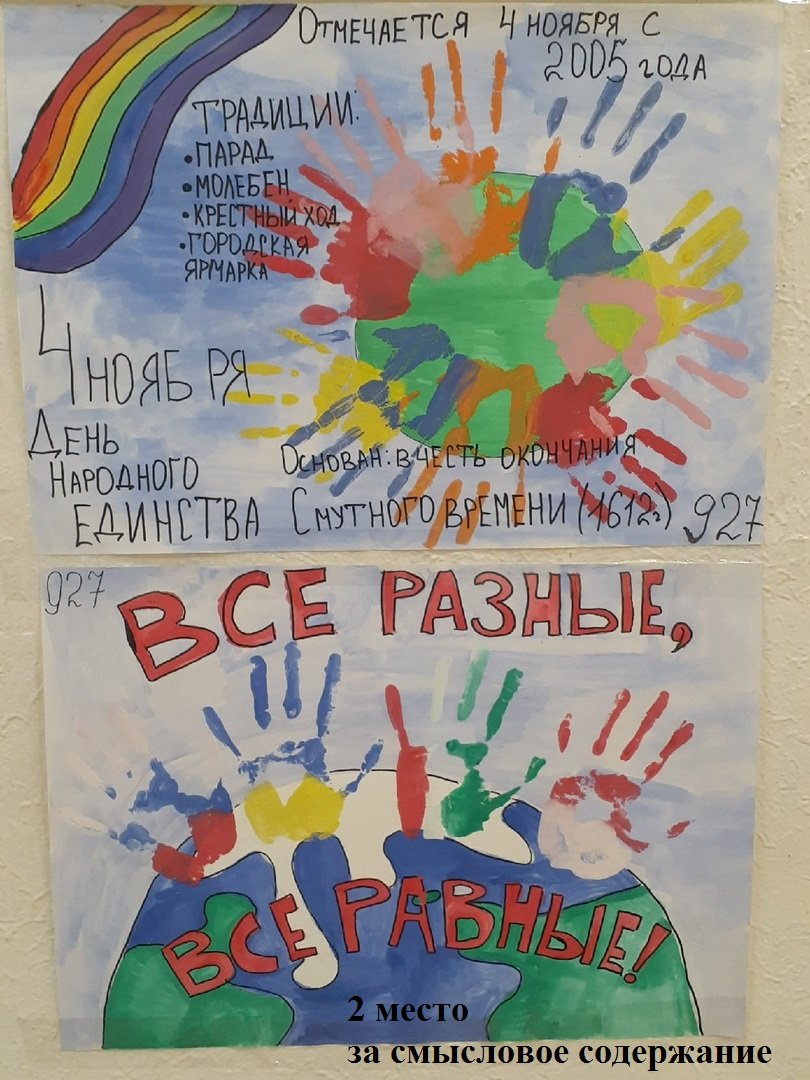 Отмечается 4 ноября с
2005 года
Традиции:
•Парад
•Молебен
•Крестный ход
•Городская
ярмарка
4 ноября
День
Народного
единства
Основан: в честь окончания
Смутного времени (1612г)
927
927
ВСЕ РАЗНЫЕ,
ВСЕ РАВНЫЕ!
2 место
за смысловое содержание